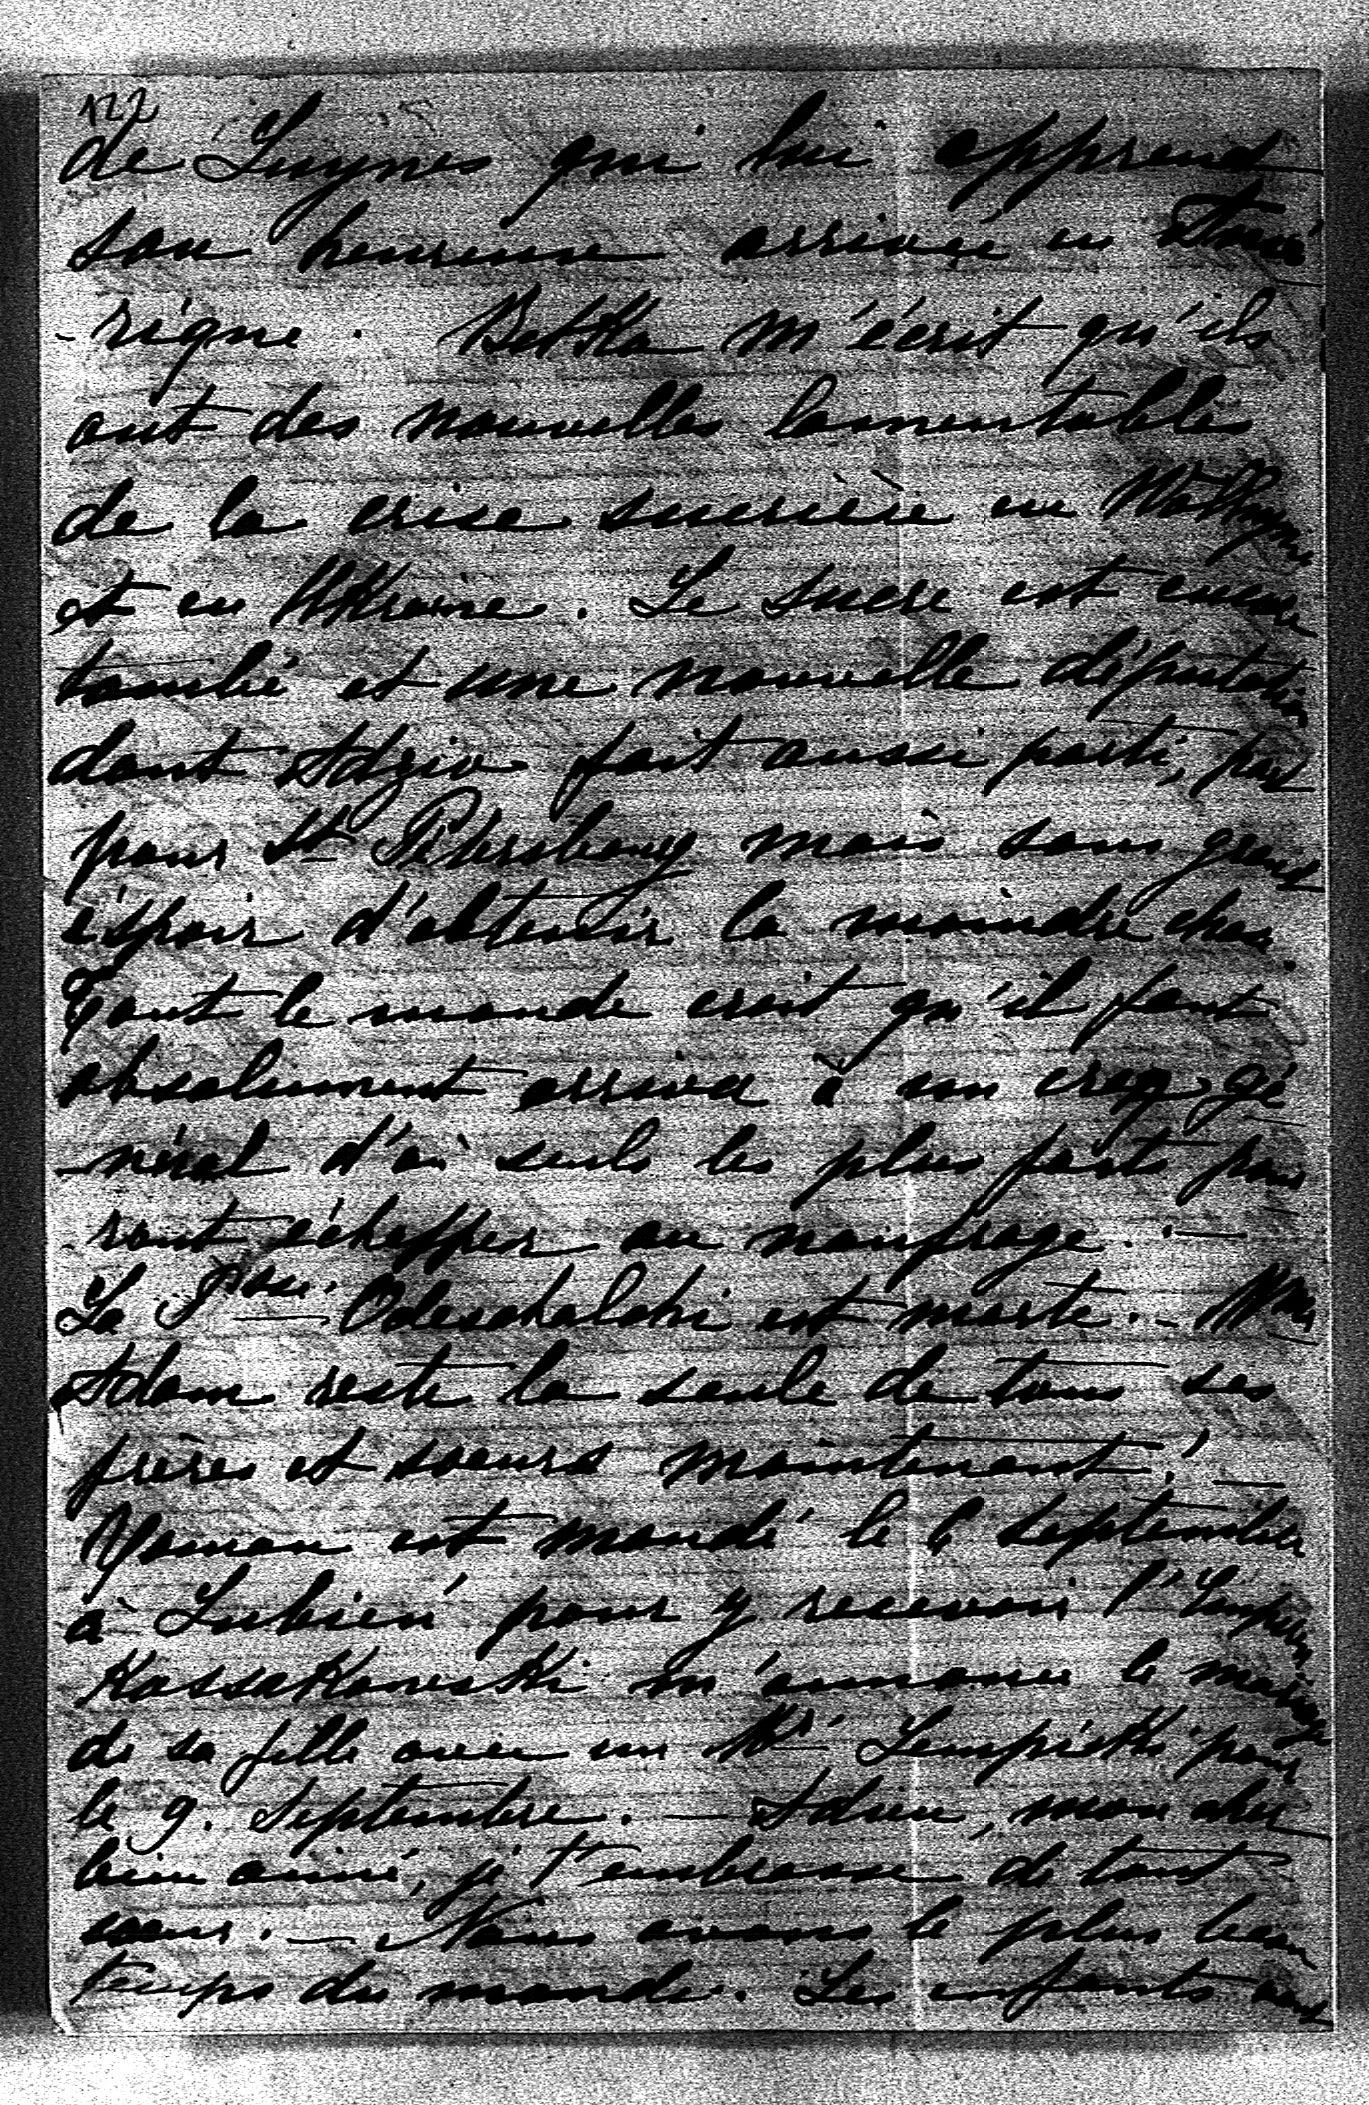 122
de Luynes qui lui apprend
son heureuse arrivée en Amé
-rique. Betka m'écrit qu'ils
ont des nouvelles lamentables
de la crise sucrière en Wolhynie
et en Ukraine. Le sucre est encore
tombé et une nouvelle députation
dont Adzio fait aussi parti, part
pour St Pétersbourg mais sans grand
éspoir d'obtenir la moindre chose.
Tout le monde croit qu'il faut
absolument arriver à un craq gé
-néral d'où seuls les plus forts pour
-ront échapper au naufrage. —
La Psse Odescalchi est morte. — Mme
Adam reste la seule de tous ses
frères et soeurs maintenant! —
Roman est mandé le 6 septembre
à Lubień pour y recevoir l'Empereur
Kossakowski m'annonce le mariage
de sa fille avec un Mr Lempicki pour
le 9. Septembre. — Adieu, mon cher
bien aimé, je t'embrasse de tout
coeur. — Nous avons le plus beau
temps du monde. Les enfants vont